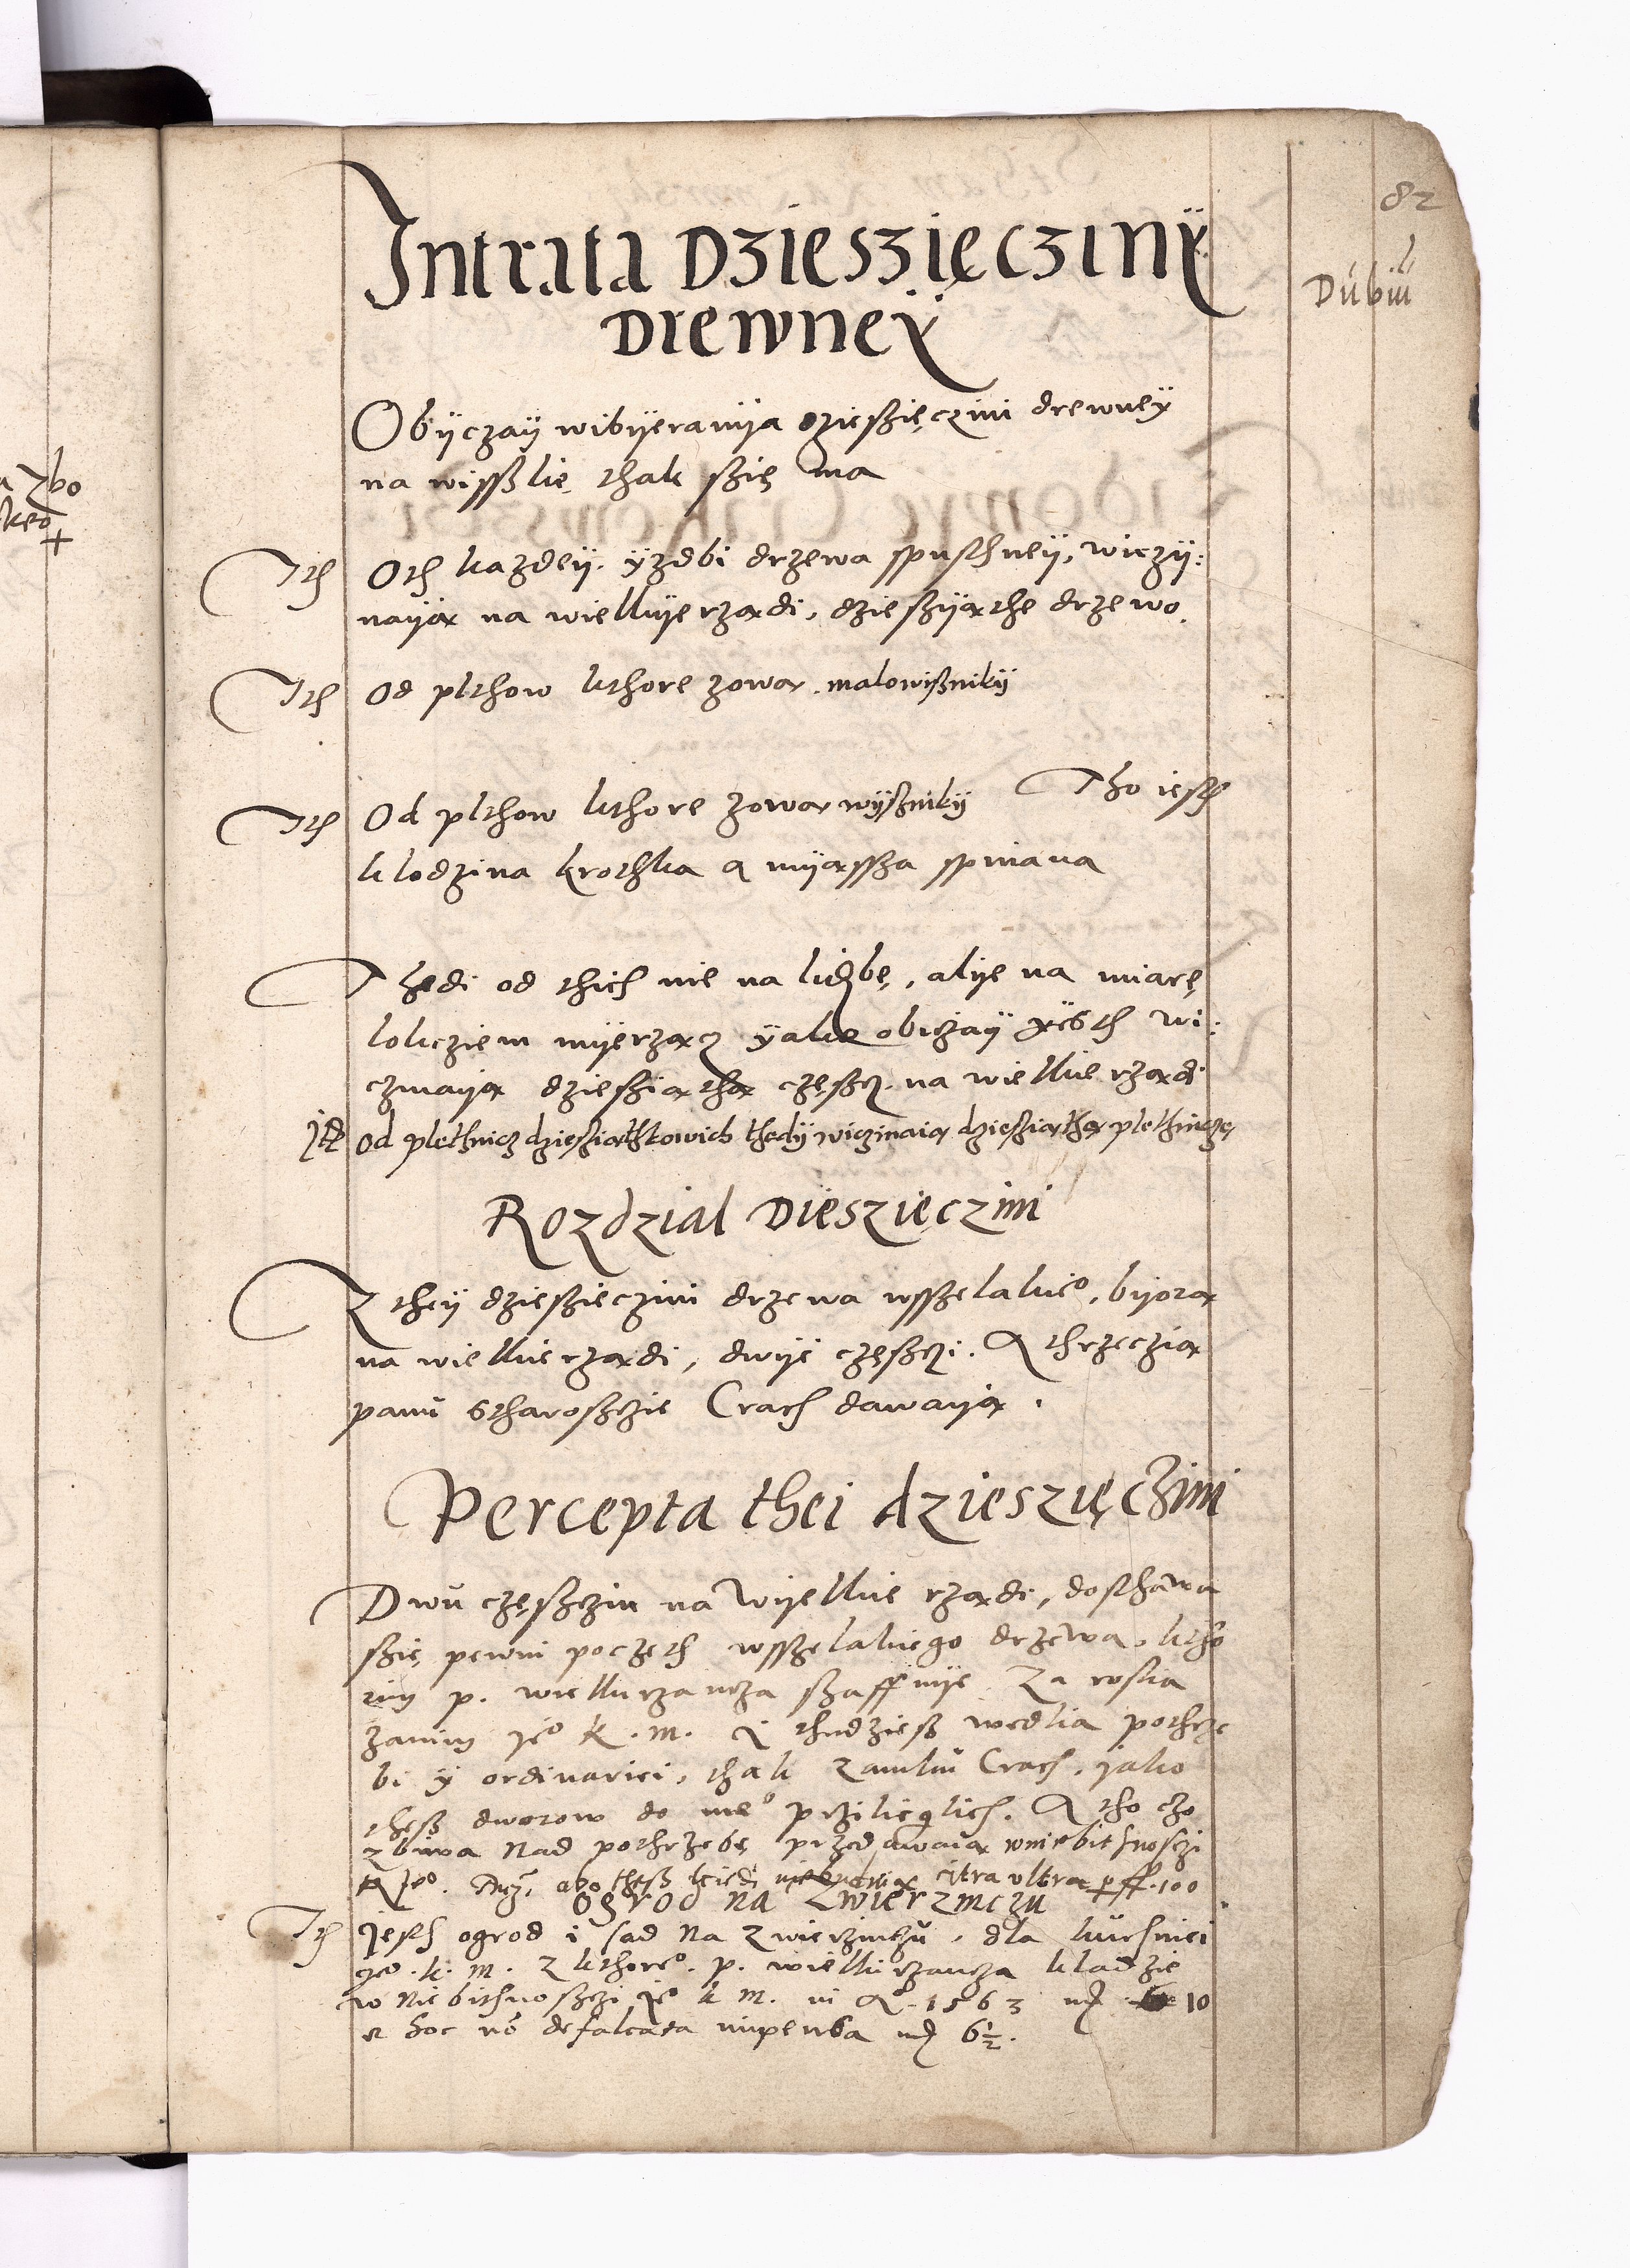 82
Dubiu
Intrata Dzieszięcziny
Drewney
Obyczay wibyeranya dzieszięczini drewney
na wisslie, thak szię ma
Ith Oth kazdey yzdbi drzewa spusthney, wiczy:
nayą na wielkye rządi, dzieszyąthe drzewo.
Ith Od plthow kthore zową malowiszniky
Ith Od plthow kthore zową wyszniky Tho iesth
klodzina krothka a myąssza spniana
Thedi od thich nie na liczbę, alye na miarę
lokcziem myerząncz yako obiczay iesth wi:
czinayą dziesziąthą częszcz na wielkie rządi
Itd od plethnicz dziesziąthkowich thedy wiczinaią dziesziąthą plethniczę
Rozdzial Dieszięczini
Z they dzieszieczini drzewa wsszelakieo, byorą
na wielkie rządi, dwye częszczi. A thrzeczią
panu stharoszczie Crach dawayą.
Percepta thei dzieszięczini
Dwu częszcziu na Wyelkie rządi, dosthawa
szię pewni poczeth wsszelakiego drzewa, ktho
rim p. wielkurzancza szaffuye Za roska
zanim yeo k. m. y thudziesz wedlia pothrze
bi y ordinariei, thak zamku Crach, jako
thesz dworow do nieo prziliegłich. A tho czo
zbiwa nad pothrzebę przedawaią wniebithnosczi
K Jeo. abo thesz kiedi citra ultra ff. 100
Ogrod na Zwierzinczu
Ith jesth ogrod i sad na Zwierzinczu, dla kuchniei
yeo. k. m. z kthoreo. p. wielkirzancza kladzie
w niebithnoszczi yeo k m. in Ao. 1563 mr 10
et hoc no defalcata impensa mr 6½.